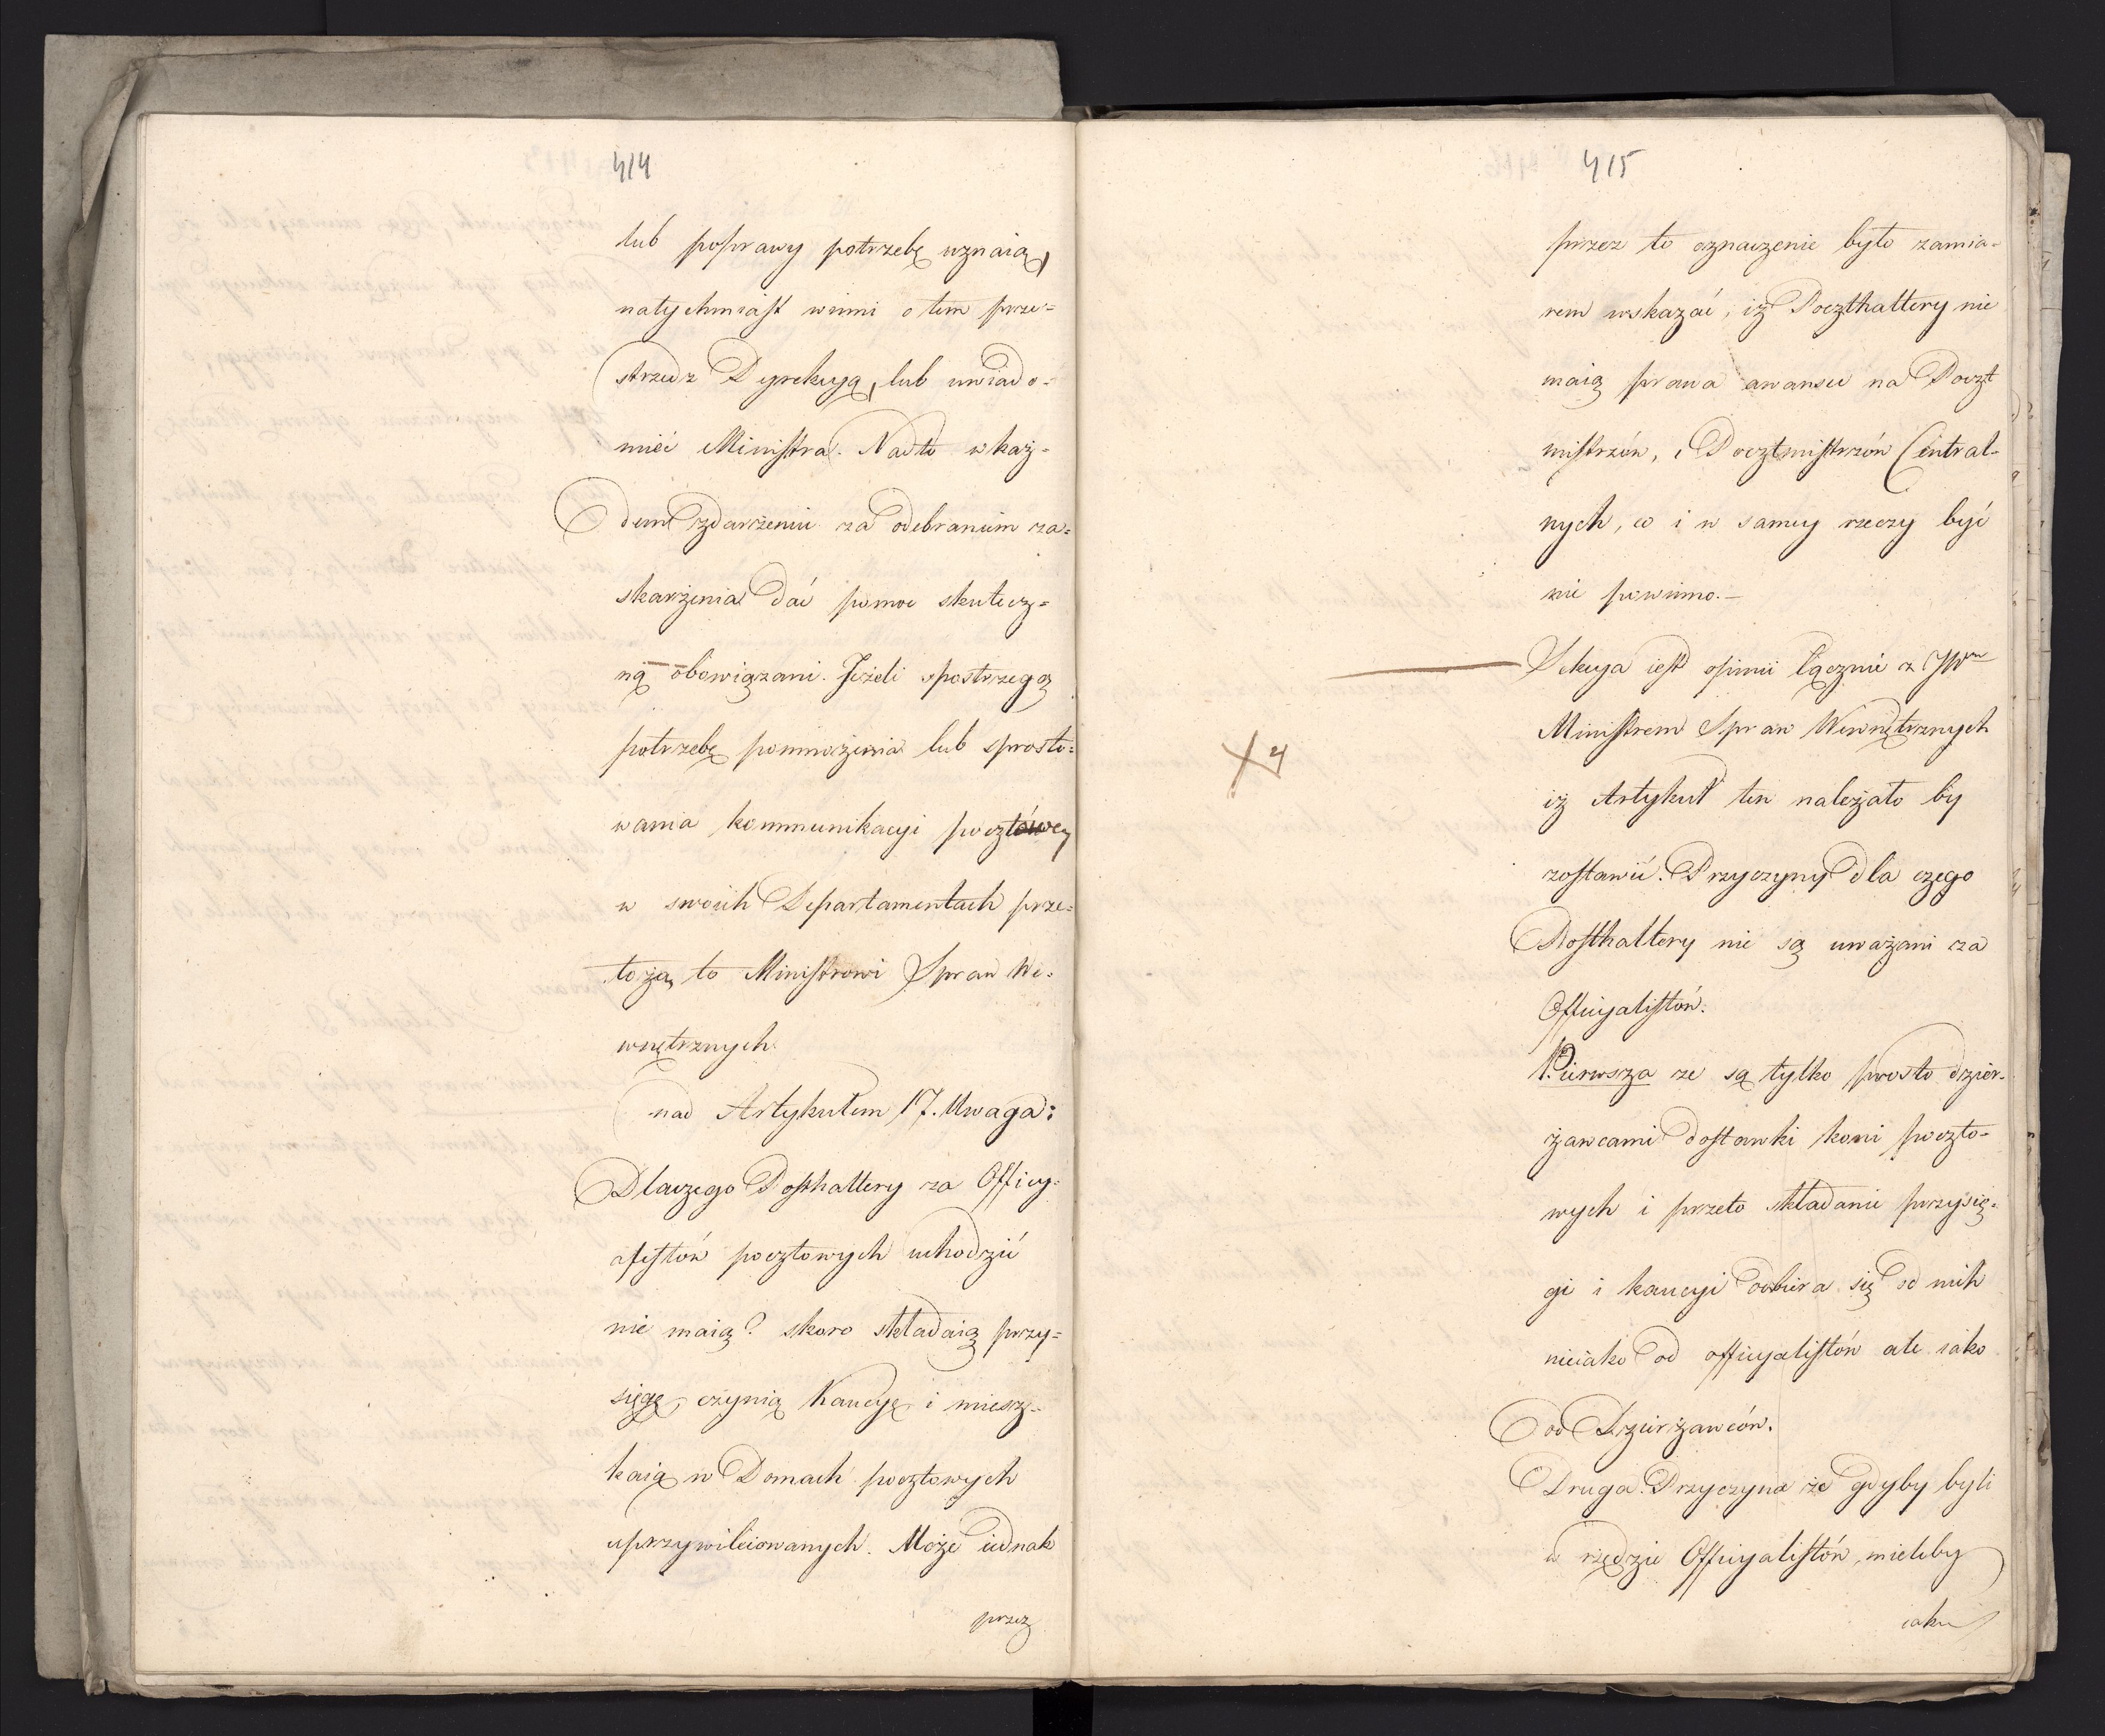 414
lub poprawy potrzebę uznaią,
natychmiast winni o tem prze-
strzedz Dyrekcyą, lub uwiado-
mić Ministra. Nadto w każ-
dem zdarzeniu za odebraniem za-
skarżenia dać pomoc skutecz-
ną obowiązani. Jeżeli spostrzegą
potrzebę pomnożenia lub sprosto-
wania kommunikacyi pocztowey
w swoich Departamentach prze-
łożą to Ministrowi Spraw We-
wnętrznych.
nad Artykułem 17. Uwaga:
Dlaczego Posthaltery za Officy-
alistów pocztowych uchodzić
nie maią? skoro składaią przy-
sięgę, czynią Kaucyę i miesz-
kaią w Domach pocztowych
uprzywileiowanych. Może iednak
przez
415
przez to oznaczenie było zamia-
rem wskazać, iż Poczthaltery nie
maią prawa awansu na Poczt
mistrzów, i Pocztmistrzów Central-
nych, co i w samey rzeczy być
nie powinno.-
Sekcya iest opinii łącznie z JWm
Ministrem Spraw Wewnętrznych
iż Artykuł ten należało by
X 4
zostawić. Przyczyny dla czego
Posthaltery nie są uważani za
Officyalistów:
Pierwsza że są tylko prosto dzier-
żawcami dostawki koni poczto-
wych i przeto składanie przysię-
gi i kaucyi odbiera się od nich
nieiako od officyalistów ale iako
od Dzierżawców.
Druga Przyczyna że gdyby byli
w rzędzie Officyalistów, mieliby
iako